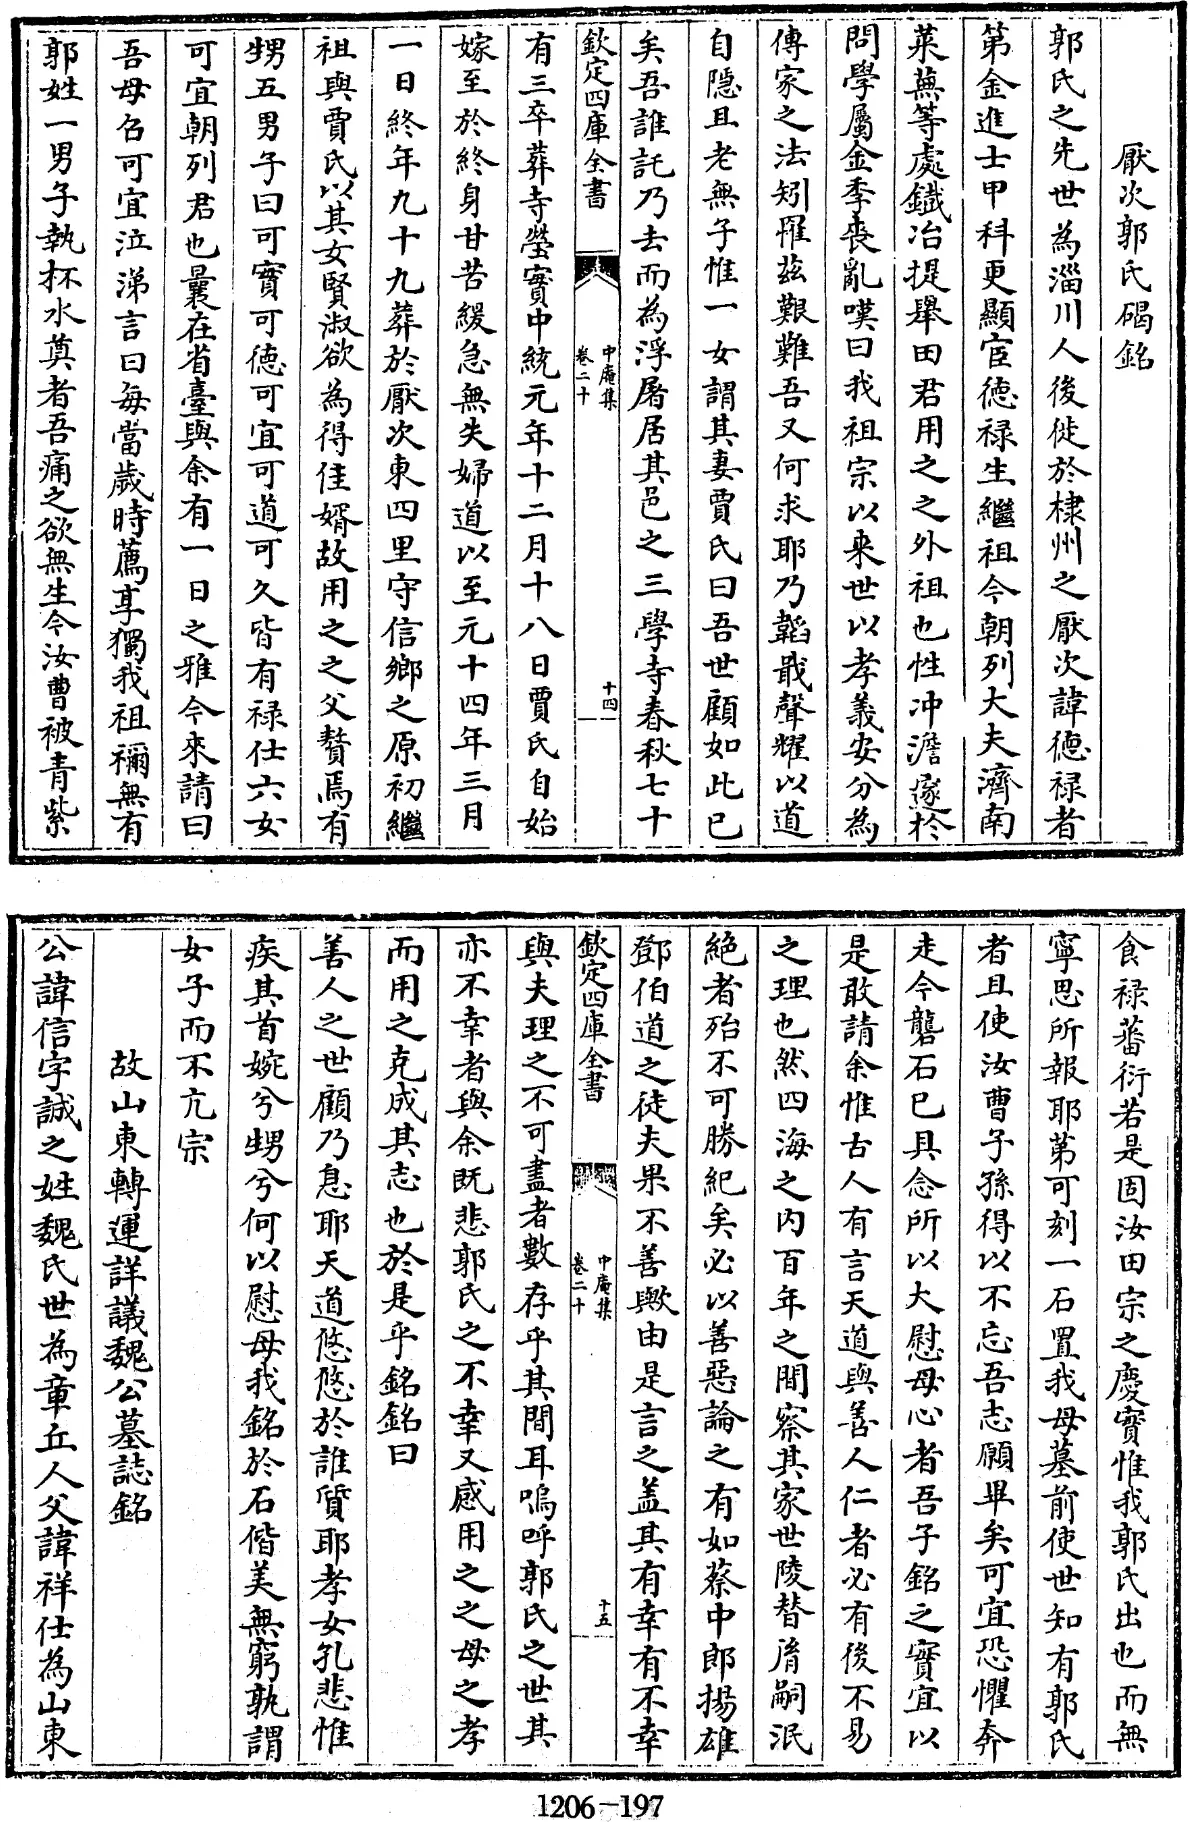 厭次郭氏碣銘
郭氏之先世為淄川人後徙於棣州之厭次諱德禄者
第金進士甲科更顯宦德禄生繼祖今朝列大夫濟南
萊蕪等處鐵冶提舉田君用之之外祖也性沖澹邃於
問學屬金季喪亂嘆曰我祖宗以來世以孝義安分為
傳家之法矧罹兹艱難吾又何求耶乃韜戢聲耀以道
自隱且老無子惟一女謂其妻賈氏曰吾世顧如此已
矣吾誰託乃去而為浮屠居其邑之三學寺春秋七十
欽定四庫全書
中庵集
卷二十
十四
有三卒葬寺塋實中統元年十二月十八日賈氏自始
嫁至於終身甘苦緩急無失婦道以至元十四年三月
一日終年九十九葬於厭次東四里守信鄉之原初繼
祖與賈氏以其女賢淑欲為得佳婿故用之之父贅焉有
甥五男子曰可實可德可宜可道可久皆有禄仕六女
可宜朝列君也曩在省臺與余有一日之雅今來請曰
吾母名可宜泣涕言曰每當歲時薦享獨我祖禰無有
郭姓一男子執杯水奠者吾痛之欲無生今汝曹被青紫
食禄蕃衍若是固汝田宗之慶實惟我郭氏出也而無
寧思所報耶第可刻一石置我母墓前使世知有郭氏
者且使汝曹子孫得以不忘吾志願畢矣可宜恐懼奔
走今礱石已具念所以大慰母心者吾子銘之實宜以
是敢請余惟古人有言天道與善人仁者必有後不易
之理也然四海之内百年之間察其家世陵替胤嗣泯
絕者殆不可勝紀矣必以善惡論之有如蔡中郎揚雄
鄧伯道之徒夫果不善歟由是言之盖其有幸有不幸
欽定四庫全書
中庵集
卷二十
十五
與夫理之不可盡者數存乎其間耳嗚呼郭氏之世其
亦不幸者與余既悲郭氏之不幸又感用之之母之孝
而用之克成其志也於是乎銘銘曰
善人之世顧乃息耶天道悠悠於誰質耶孝女孔悲惟
疾其首婉兮甥兮何以慰母我銘於石偕美無窮孰謂
女子而不亢宗
故山東轉運詳議魏公墓誌銘
公諱信字誠之姓魏氏世為章丘人父諱祥仕為山東
1206-197